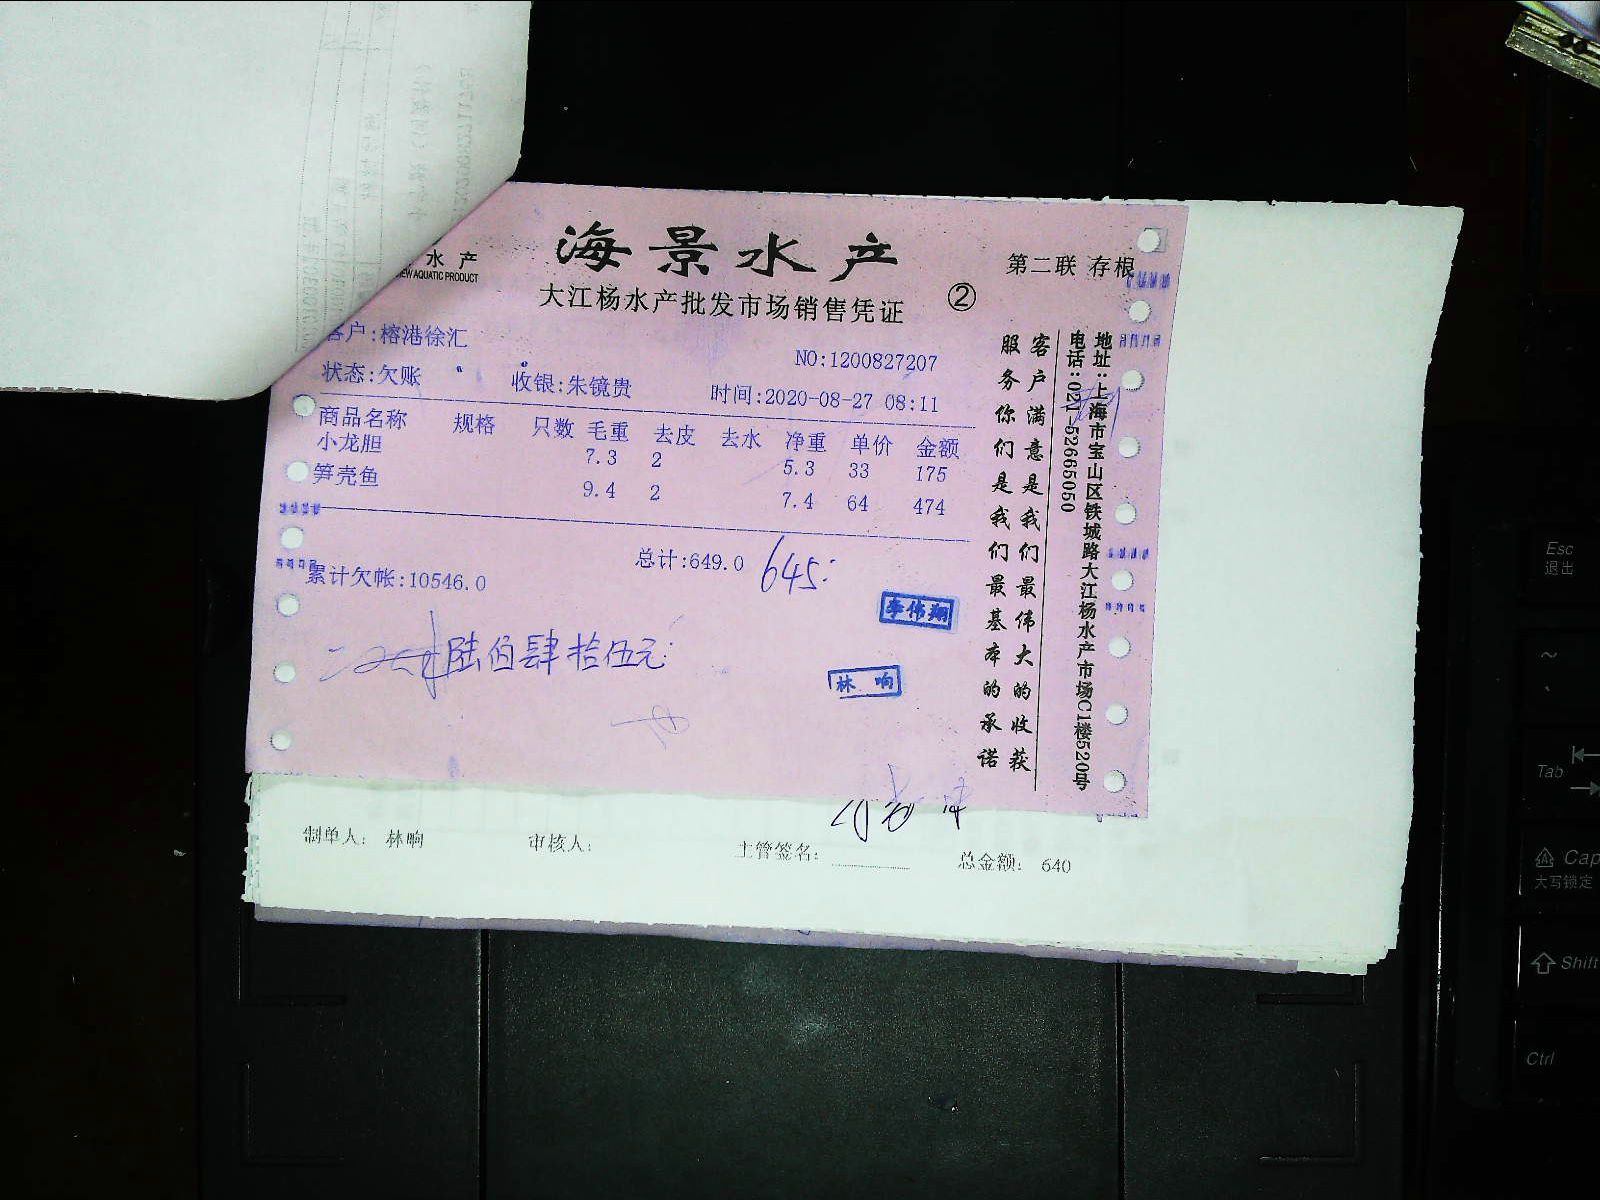 海景水产
水产
VIEW AQUATIC PRODUCT
大江杨水产批发市场销售凭证
②
第二联 存根
客户:榕港徐汇
NO:1200827207
状态:欠账
收银:朱镜贵
时间:2020-08-27 08:11
商品名称 规格 只数 毛重 去皮 去水 净重 单价 金额
小龙胆 7.3 2 5.3 33 175
笋壳鱼 9.4 2 7.4 64 474
总计:649.0
645
累计欠帐:10546.0
陆佰肆拾伍元
李伟翔
林响
客户满意是我们最伟大的收获
服务你们是我们最基本的承诺
地址:上海市宝山区铁城路大江杨水产市场C1楼520号
电话:021-52665050
制单人: 林响
审核人:
主管签名:
总金额: 640
Esc
退出
Tab
Cap
大写锁定
Shift
Ctrl